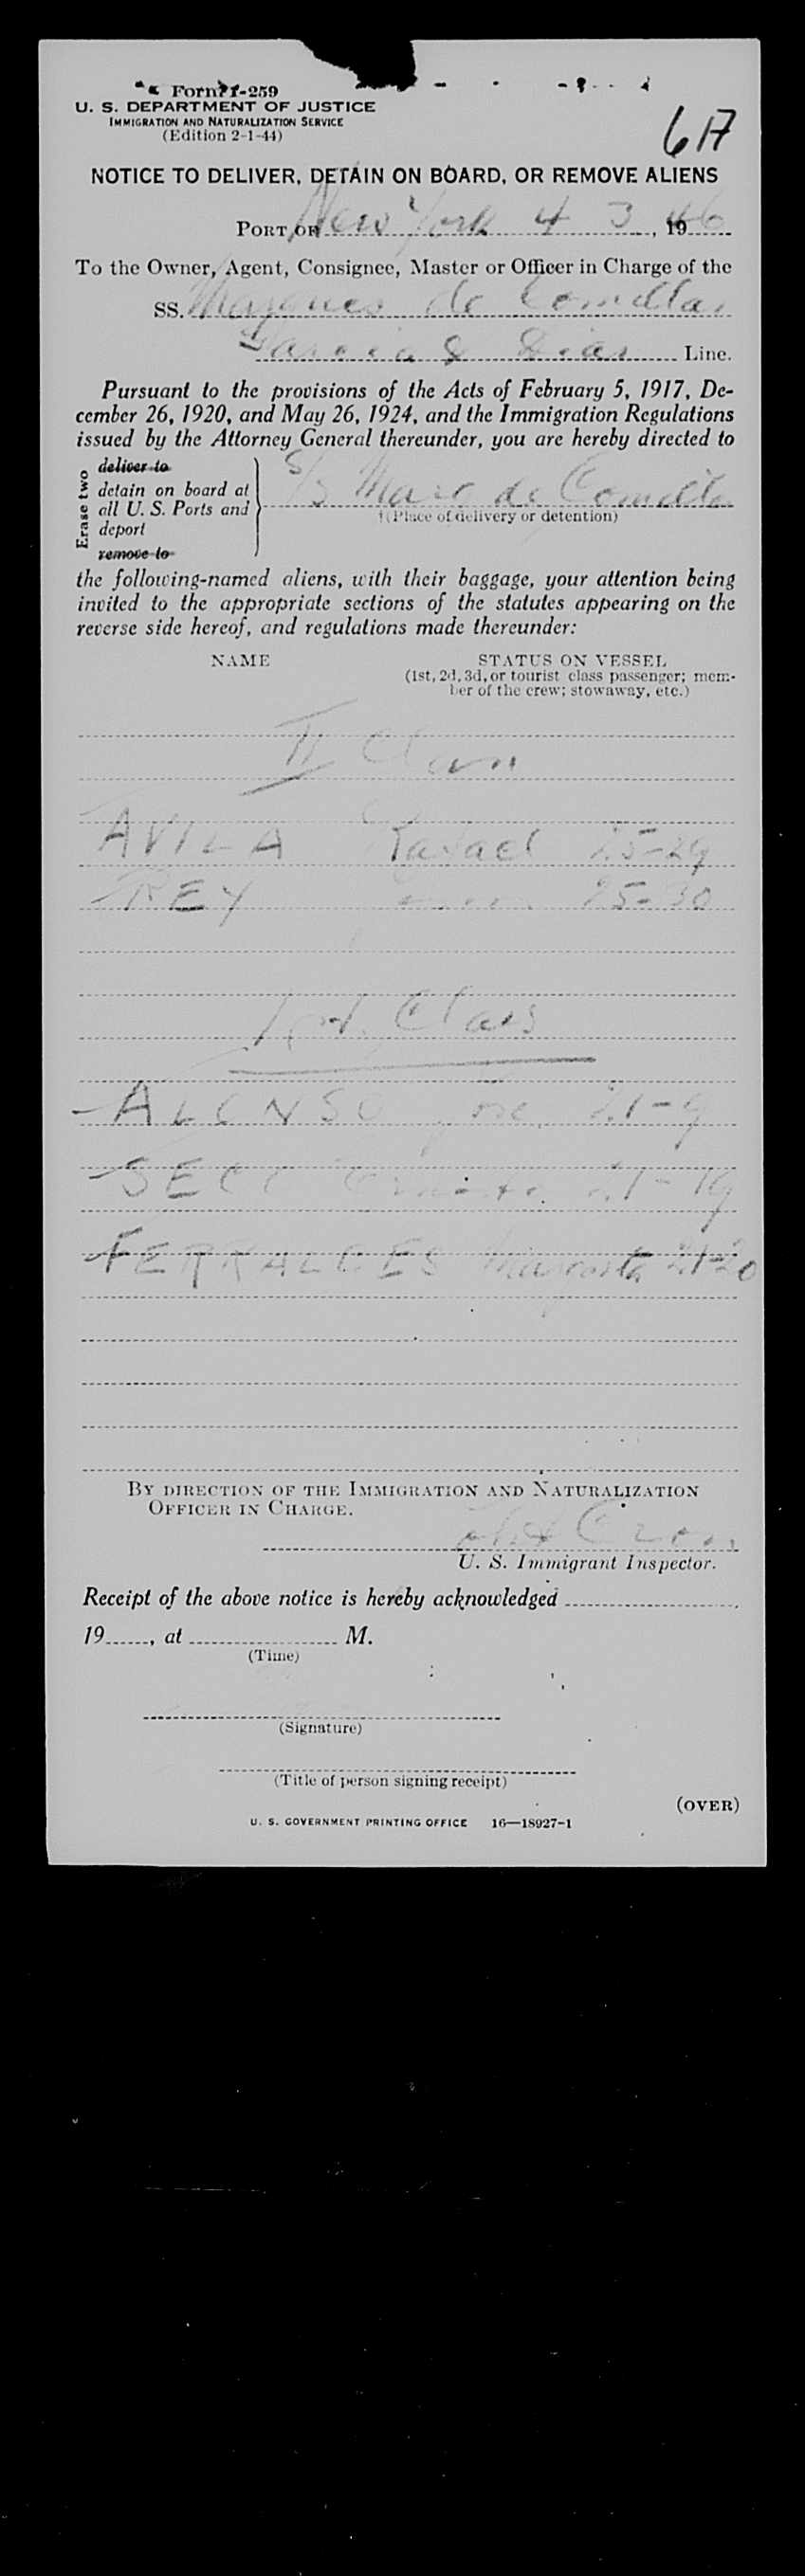 Form I-259
U. S. DEPARTMENT OF JUSTICE
IMMIGRATION AND NATURALIZATION SERVICE
(Edition 2-1-44)
617
NOTICE TO DELIVER, DETAIN ON BOARD, OR REMOVE ALIENS
PORT OF New York 4 3, 1946
To the Owner, Agent, Consignee, Master or Officer in Charge of the
SS. Marques de Comillas
Garcia & Diaz Line.
Pursuant to the provisions of the Acts of February 5, 1917, De-
cember 26, 1920, and May 26, 1924, and the Immigration Regulations
issued by the Attorney General thereunder, you are hereby directed to
Erase two
deliver to
detain on board at
all U. S. Ports and
deport
remove to
S/S Marc de Comillas
†(Place of delivery or detention)
the following-named aliens, with their baggage, your attention being
invited to the appropriate sections of the statutes appearing on the
reverse side hereof, and regulations made thereunder:
NAME STATUS ON VESSEL
(1st, 2d, 3d, or tourist class passenger; mem-
ber of the crew; stowaway, etc.)
II Class
AVILA Rafael 25-29
REY 25-30
1st Class
ALONSO 21-9
21-19
21-20
BY DIRECTION OF THE IMMIGRATION AND NATURALIZATION
OFFICER IN CHARGE.
U. S. Immigrant Inspector.
Receipt of the above notice is hereby acknowledged
19......, at M.
(Time)
(Signature)
(Title of person signing receipt)
(OVER)
U. S. GOVERNMENT PRINTING OFFICE 16—18927-1